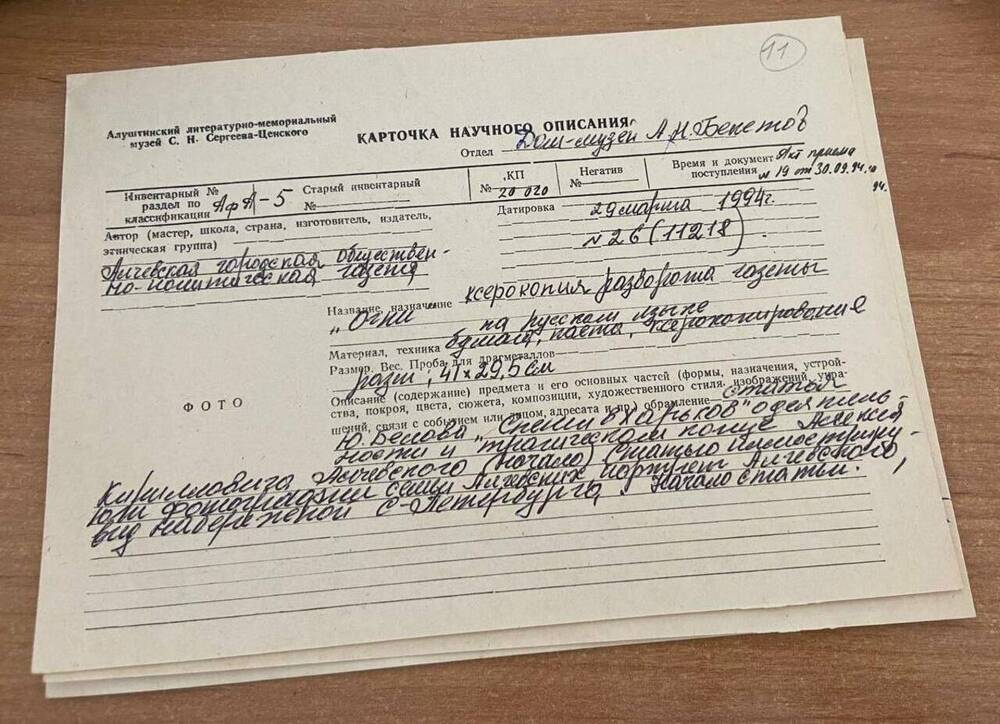 11
Алуштинский литературно-мемориальный
музей С. Н. Сергеева-Ценского
КАРТОЧКА НАУЧНОГО ОПИСАНИЯ
Отдел Дом-музей А.Н.Бекетов
Инвентарный №
раздел по
классификации АфА-5
Старый инвентарный
№
КП
№ 20 020
Негатив
№
Время и документ Акт приема
поступления № 19 от 30.09.94.
94.
Автор (мастер, школа, страна, изготовитель, издатель,
этническая группа)
Алчевская городская обществен-
но-политическая газета
Датировка 29 марта 1994г.
№ 26 (11218).
Название, назначение ксерокопия разворота газеты
„Огни“ на русском языке
Материал, техника бумага, паста, ксерокопирование
Размер. Вес. Проба для драгметаллов
разм; 41 х 29,5 см
ФОТО
Описание (содержание) предмета и его основных частей (формы, назначения, устрой-
ства, покроя, цвета, сюжета, композиции, художественного стиля, изображений, укра-
шений, связи с событием или лицом, адресата и пр.) обрамление статья
Ю. Белова „Спеши в Харьков" о деятель-
ности и трагическом конце Алексея
Кирилловича Алчевского (начало) Статью иллюстриру-
ют фотографии семьи Алчевских портрет Алчевского,
вид набережной С-Петербурга, Начало статьи.